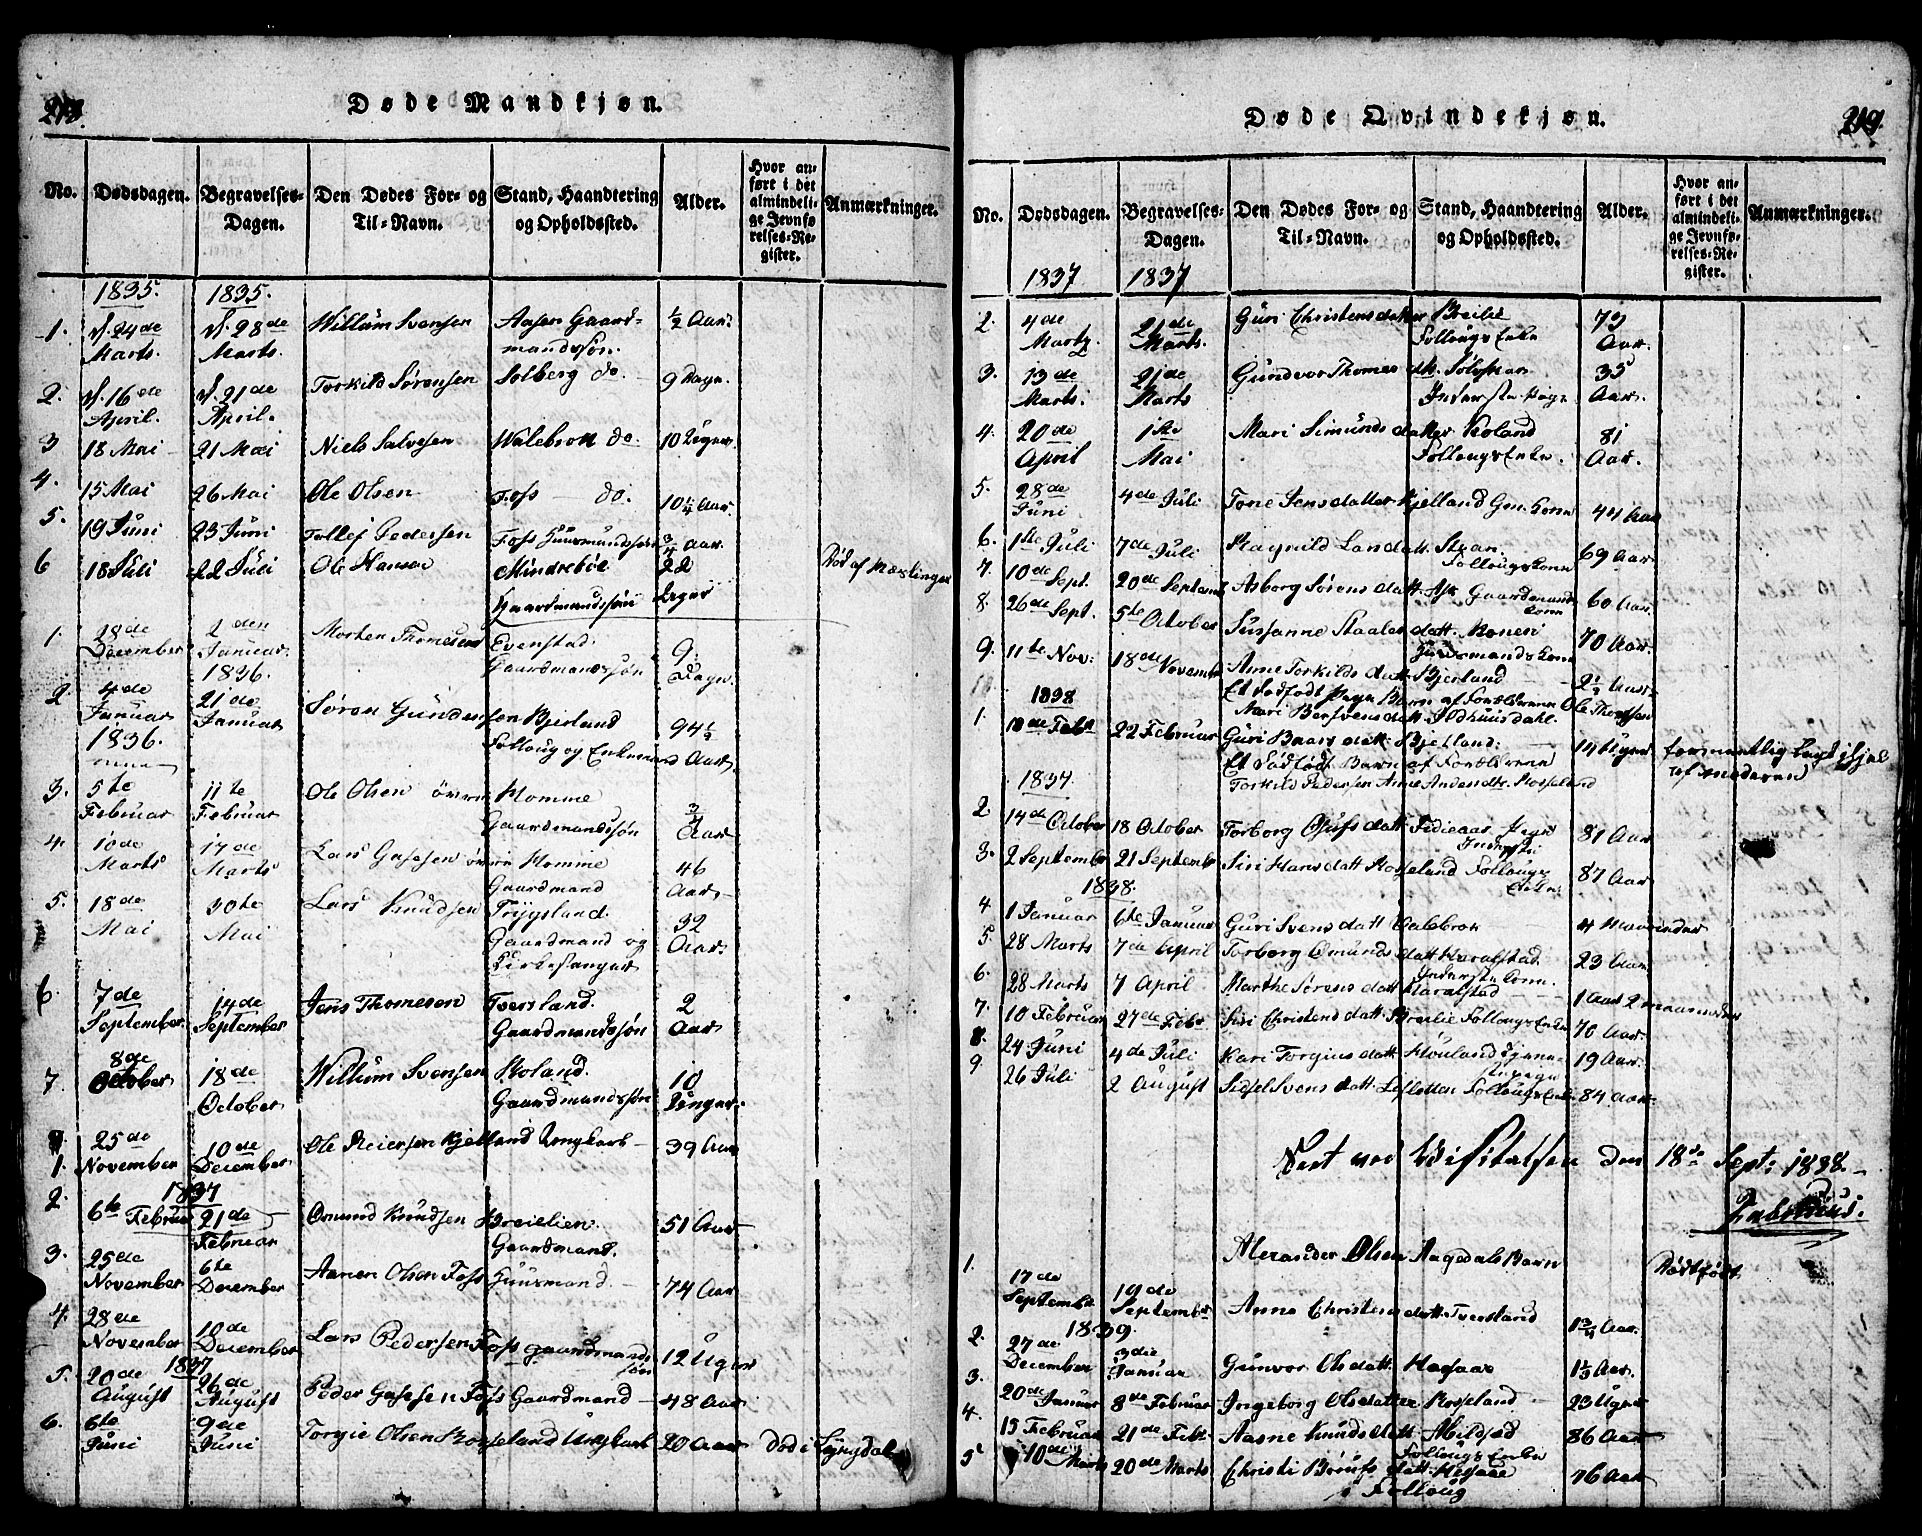 218.
Døde Mandkjøn.
No. Dødsdagen. Begravelses-Dagen. Den Dødes For- og Til-Navn. Stand, Haandtering og Opholdssted. Alder. Hvor anført i det almindelige Jevnførelses-Register. Anmærkninger.
1835. 1835.
1. d. 24de Marts. d. 28de Marts. Willum Svensen Aasen Gaardmandssøn. ½ Aar.
2. d. 16de April. d. 21de April. Torkild Sørensen Solberg do. 9 Dage.
3 18 Mai 21 Mai Niels Salvesen Walebrok do. 10 Uger.
4. 15 Mai 26 Mai Ole Olsen Foss do. 10¼ Aar.
5. 19 Juni 23 Juni Tollef Pedersen Foss Huusmandssøn ¾ Aar.
6 18 Juli 22 Juli Ole Hansen Mindrebøe Gaardmandssøn 22 Uger Død af Mæslinger
1. 28de December 2den Januar 1836. Morten Thomesen Evenstad Gaardmandssøn 9 Dage.
2 4de Januar 1836. 21de Januar Søren Gundersen Bjerland Follaug og Enkemand 94½ Aar.
3. 5te Februar 11te Februar Ole Olsen øvre Homme Gaardmandssøn ¾ Aar
4. 10de Marts 17de Marts Lars Gasesen øvre Homme Gaardmand 46 Aar
5. 18de Mai 30te Mai Lars Knudsen Trygsland. Gaardmand og Kirkesanger 32 Aar.
6. 7de September 14de September Jens Thomesen Tversland. Gaardmandssøn 2 Aar
7. 8de October 18de October Willum Svensen Roland. Gaardmandssøn 10 Uger.
1. 25de November 10de December Ole Reiersen Kjelland Ungkarl 39 Aar
1837
2. 6te Februar 21de Februar Omund Knudsen Breilien. Gaardmand. 51 Aar
3. 25de November 6te December Aanen Olsen Foss Huusmand 74 Aar
4. 28de November 10de December Lars Pedersen Foss gaardmands søn 12 Uger
1837
5. 20de August 26de August Peder Gasesen Foss Gaardmand 48 Aar
6. 6te Juni 9de Juni Torgie Olsen Rosseland Ungkarl 20 Aar Død i Lyngdal
219.
Døde Qvindekjøn.
No. Dødsdagen. Begravelses-Dagen. Den Dødes For- og Til-Navn. Stand, Haandtering og Opholdssted. Alder. Hvor anført i det almindelige Jevnførelses-Register. Anmærkninger.
1837 1837
2. 4de Marts. 21de Marts. Guri Christensdatter Breilie Follougs Enke 79 Aar.
3. 13de Marts. 21de Marts Gundvor Thomesdtr. 35 Aar.
4. 20de April 1ste Mai Mari Simundsdatter Roland Follougs Enke. 81 Aar.
5. 28de Juni 4de Juli Tone Jensdatter Kjelland Gm. Kone 44 Aar
6. 1ste Juli 7de Juli Ragnild Follougs Kone 69 Aar.
7. 10de Sept. 20de September Asborg Sørensdatt. Ask Gaardmands Kone 60 Aar.
8. 26de Sept. 5te October Sussanne Staalesdatt. Huusmands Kone 70 Aar.
9. 11te Nov: 18de November Anne Torkildsdatt. Bjerland 2½ Aar
1838 Et Dødfødt Barn af Forældrene Ole Thomsen Mari Berfvensdatt.
1. 10de Febr. 22 Februar Guri Baarsdatt. Bjelland: 14 Uger formentlig lagt ihjel af moderen
Et Dødfødt Barn af Forældrene
1837. Torkild Pedersen Anne Andersdtr. Rosseland
2 14de October 18 October Torborg Olufsdatt. 81 Aar
3. 2 September 21 September Siri Hansdatt. Rosseland Follougs Enke. 87 Aar
1838.
4 1 Januar 6te Januar Guri Svensdatt. Valebrok 4 Maaneder
5. 28 Marts 7de April Torborg Omundsdatt. Haralstad Inderste Kone. 23 Aar
6. 28 Marts 7 April Marthe Sørensdatt. Haralstad 1 Aar 2 maaneder
7. 10 Februar 27de Febr. Siri Christensdatt. Breilie Follougs Enke 70 Aar
8. 24 Juni 4de Juli Kari Torgiusdatt. 19 Aar.
9. 26 Juli 2 August Sidsel Svensdatt. Follougs Enke 84 Aar.
Seet ved Visitatsen den 18de Sept: 1838.
1. Alexander Olsen Aagedals Barn Dødfødt
17de September 19de September Anne Christensdatt. Tversland 1¾ Aar.
1839.
2. 27de December 3die Januar Gunvor Olsdatt. Hægaae 1½ Aar.
3. 20de Januar 8de Februar Ingeborg Olsdatter Rosseland 23 Uger
4. 13 Februar 21de Febr. Aasne Knudsdatt. Follougs Enke 86 Aar
5 10de Marts 20de Marts Christi Børufsdatt. Hægaae Folloug 76 Aar